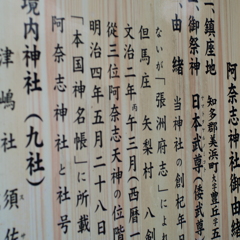 阿奈志神社御由緒
一、鎮座地 知多郡美浜町 豊丘五
一、御祭神 日本武尊(倭武尊
一、由緒 当神社の創祀年
ないが「張洲府志」によれ
但馬庄 矢梨村 八剣
文治二年丙午三月(西暦一
從三位阿奈志天神の位階
明治四年五月二十八日
「本国神名帳」に所載
阿奈志神社と社号
境内神社(九社)
津嶋社 須佐